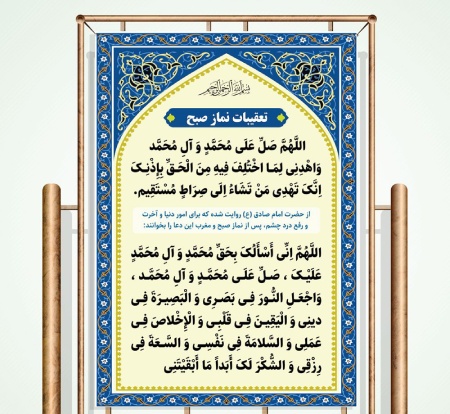 بسم الله الرحمن الرحیم
تعقیبات نماز صبح
اللَّهُمَّ صَلِّ عَلَى مُحَمَّدٍ وَ آلِ مُحَمَّد
وَاهْدِنِي لِمَا اخْتُلِفَ فِيهِ مِنَ الْحَقِّ بِإِذْنِکَ
اِنَّکَ تَهْدِی مَنْ تَشَاءُ اِلَی صِرَاطٍ مُسْتَقِیمٍ.
از حضرت امام صادق (ع) روایت شده که برای امور دنیا و آخرت
و رفع درد چشم، پس از نماز صبح و مغرب این دعا را بخوانند:
اللَّهُمَّ اِنِّی أَسْأَلُکَ بِحَقِّ مُحَمَّدٍ وَ آلِ مُحَمَّدٍ
عَلَیْکَ ، صَلِّ عَلَی مُحَمَّدٍ وَ آلِ مُحَمَّدٍ ،
وَاجْعَلِ النُّورَ فِی بَصَرِی وَ الْبَصِیرَةَ فِی
دِینِی وَ الْیَقِینَ فِی قَلْبِی وَ الْإِخْلاصَ فِی
عَمَلِی وَ السَّلامَةَ فِی نَفْسِی وَ السَّعَةَ فِی
رِزْقِی وَ الشُّکْرَ لَکَ أَبَداً مَا أَبْقَیْتَنِی